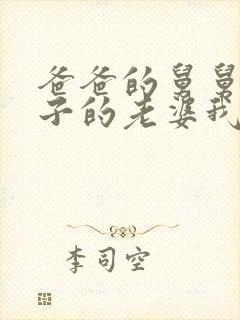 爸爸的舅舅
子的老婆我
李司空